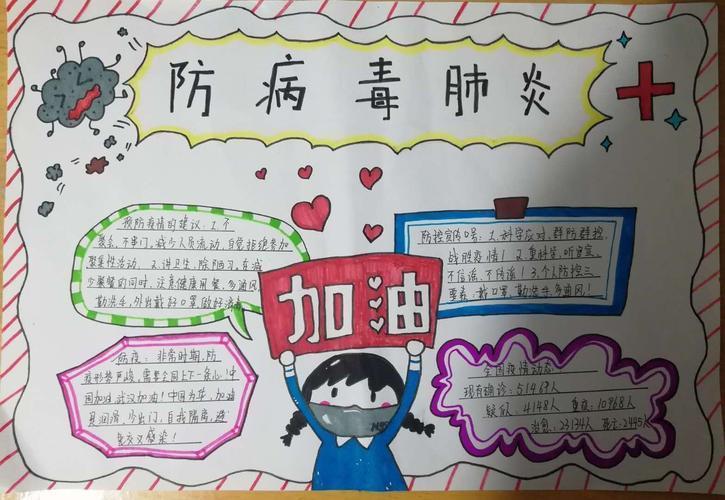 防病毒肺炎
预防疫情的建议:1.不
聚会,不串门,减少人员流动,自觉拒绝参加
聚集性活动.2.讲卫生,除陋习.在减
少聚餐的同时,注意健康用餐,多通风
勤洗手,外出戴好口罩,做好清
防控宣传口号:1.科学应对,群防群控,
战胜疫情!2.重科学,听官宣,
不信谣,不传谣!3.个人防控三
要素:戴口罩,勤洗手,多通风!
加油
防疫:非常时期,防
疫形势严峻,需要全国上下一条心!中
国加油,武汉加油!中国加油
少出门,自我隔离,避
免交叉感染!
全国疫情动态
现有确诊:51463人
疑似:4148人 重症:10968人
治愈:23134人 死亡:2445人
N95